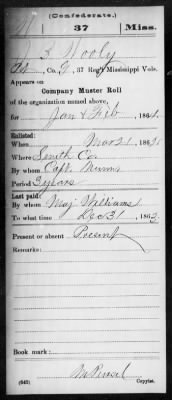 (Confederate.)
W 37 Miss.
J. S. Wooly
Pvt, Co. G, 37 Reg't Mississippi Vols.
Appears on
Company Muster Roll
of the organization named above,
for Jan & Feb, 1864.
Enlisted:
When Mar 21, 1862
Where Smith Co
By whom Capt.
Period 3 years
Last paid:
By whom Maj. Williams
To what time Dec 31, 1863
Present or absent Present
Remarks:
Book mark:
(642) Copyist.